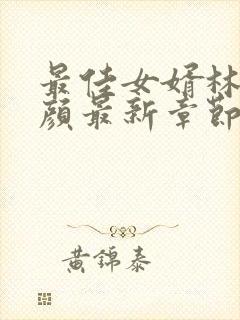 最佳女婿林
顏最新章節
黃錦泰